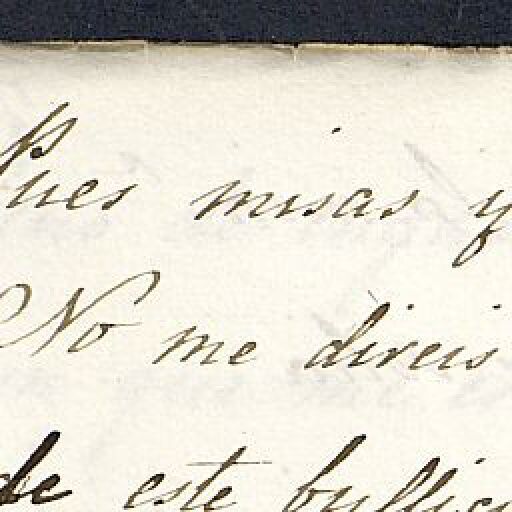 Pues misas y
No me direis
de este bullici